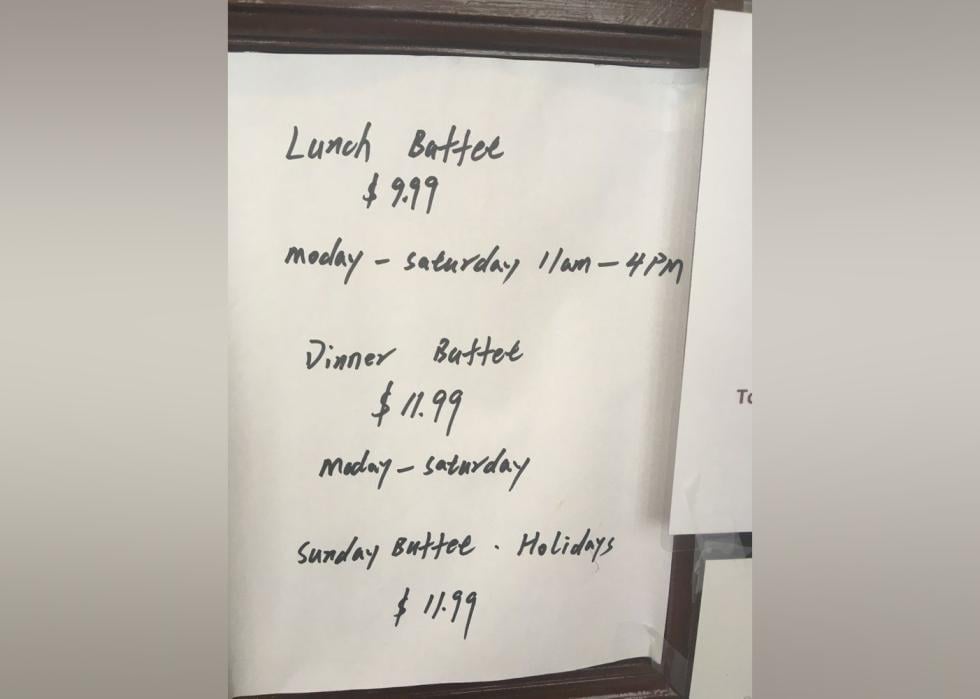 Lunch Buffee
$ 9.99
moday - saturday 11am - 4PM
Dinner Buffee
$ 11.99
moday - saturday
Sunday Buffee . Holidays
$ 11.99